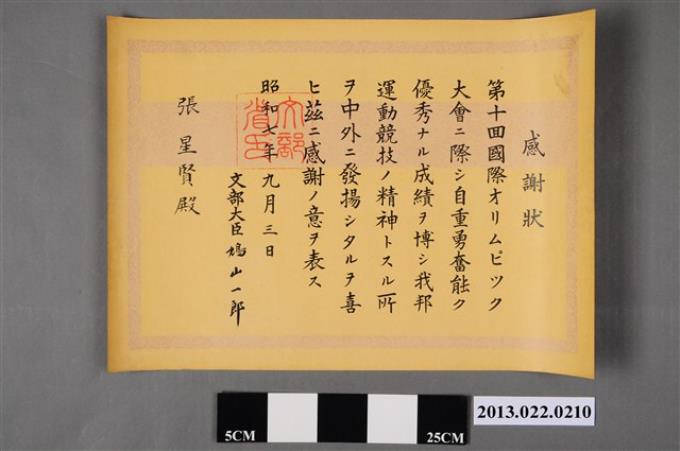 感謝狀
第十回國際オリムピック
大會ニ際シ自重勇奮能ク
優秀ナル成績ヲ博シ我邦
運動競技ノ精神トスル所
ヲ中外ニ發揚シタルヲ喜
ヒ茲ニ感謝ノ意ヲ表ス
昭和七年九月三日
文部大臣鳩山一郎
張星賢殿
文部省印
5CM
25CM
2013.022.0210